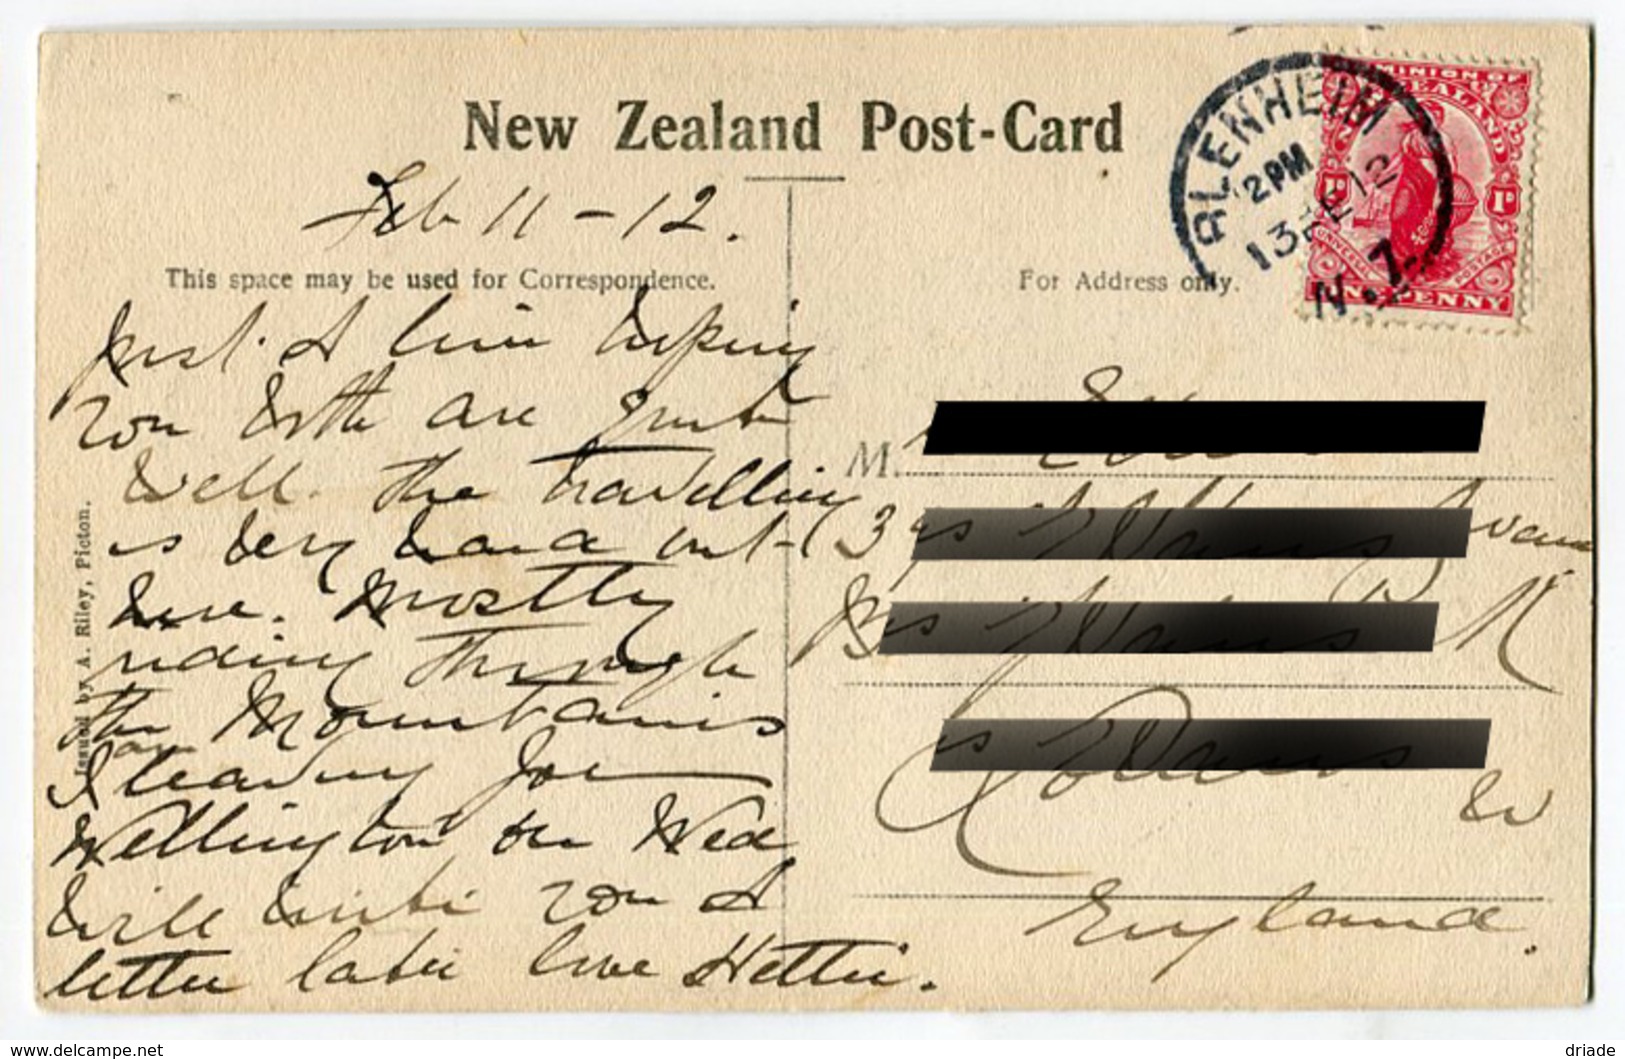 New Zealand Post-Card
Feb 11 - 12.
This space may be used for Correspondence.
Just A line hoping
you both are quite
well. The travelling
is very hard out-
here. Mostly
riding through
the Mountains
I am leaving for
Wellington on Wed
will write you A
letter later love Hettie.
Issued by A. Riley, Picton.
For Address only.
BLENHEIM
2 PM
13 FE 12
N.Z.
DOMINION OF
NEW ZEALAND
1D 1D
UNIVERSAL POSTAGE
ONE PENNY
M.
3
England.
www.delcampe.net
driade